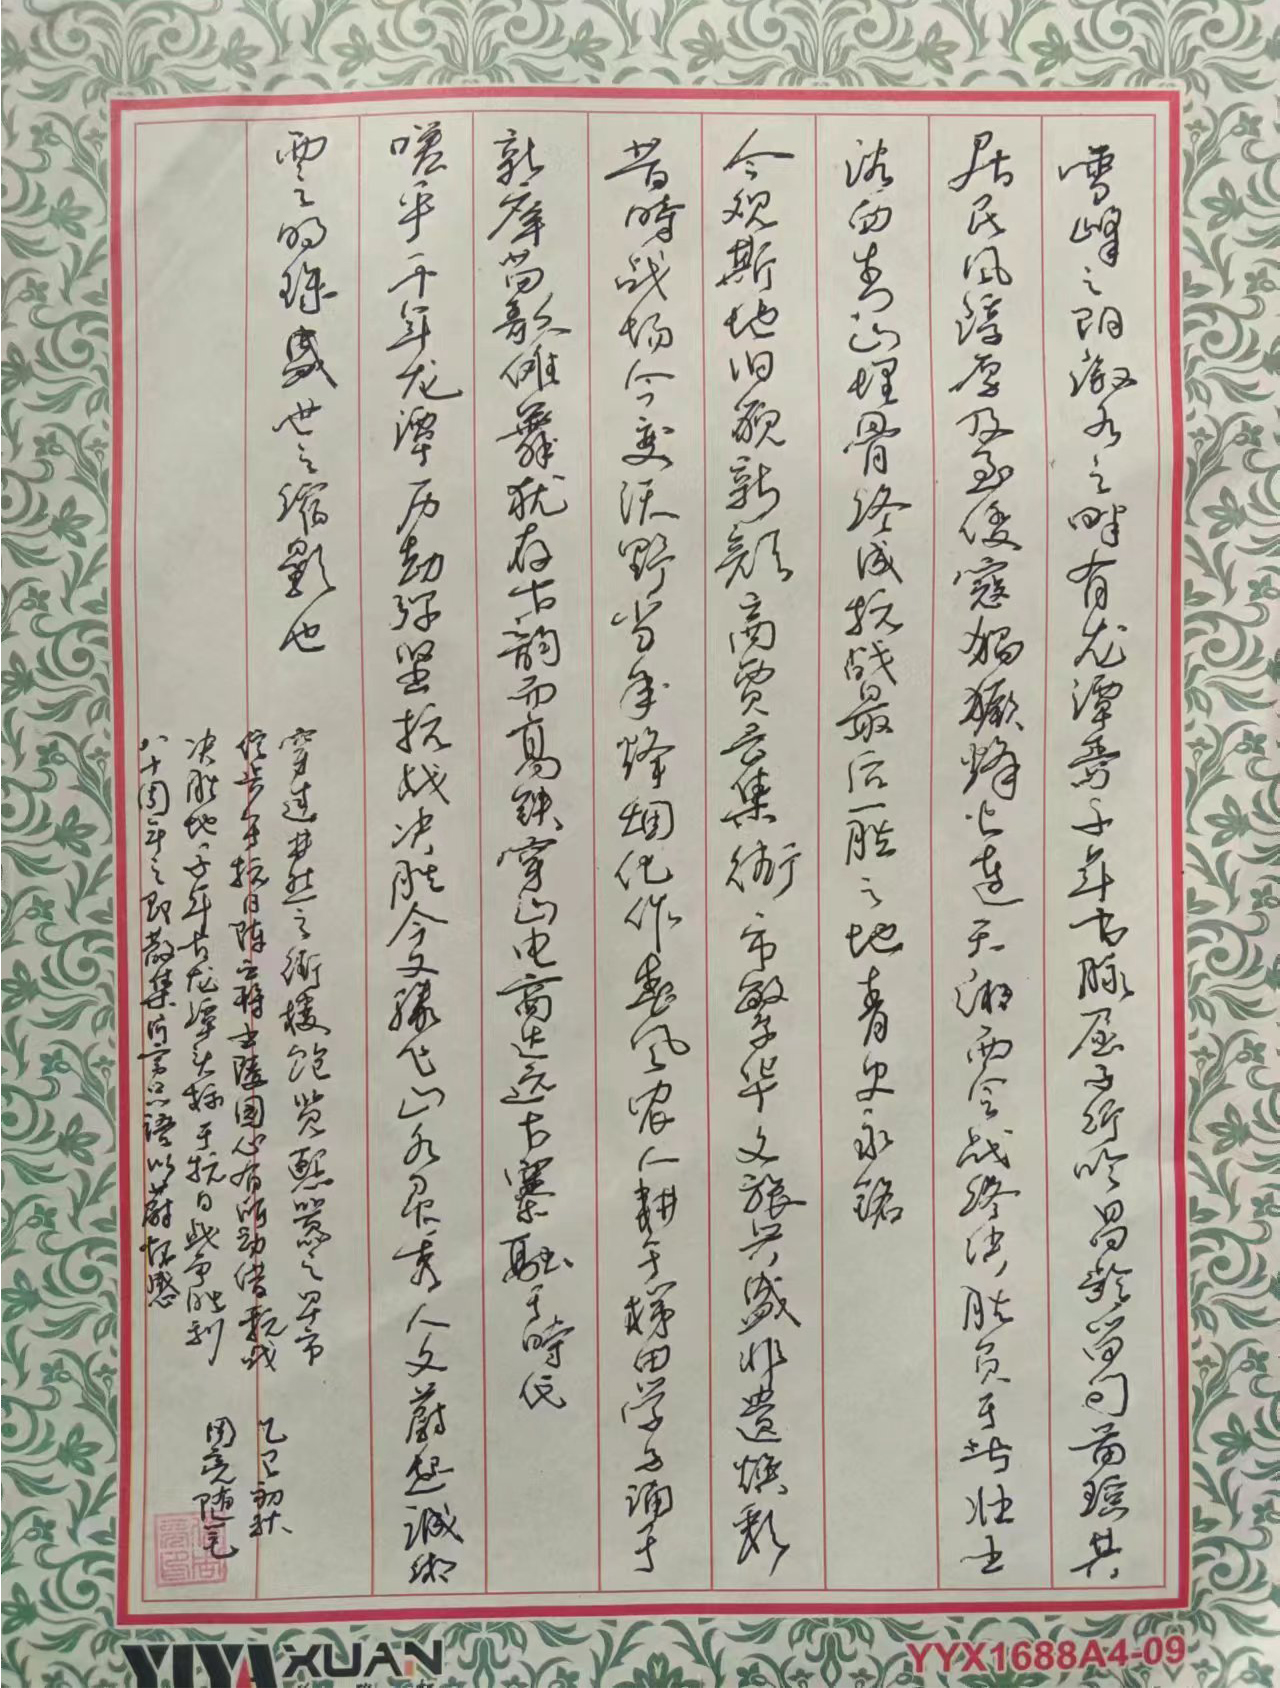 雪峰之阴溆水之畔有龙潭焉千年古脉屈子行吟昌龄留句苗瑶共
居民风淳厚及至倭寇猖獗烽火连天湘西会战终决胜负于此壮士
浴血青山埋骨终成抗战最后一胜之地青史永铭
今观斯地旧貌新颜商贾云集街市繁华文旅兴盛非遗焕彩
昔时战场今变沃野当年烽烟化作春风农人耕于梯田学子诵于
新庠苗歌傩舞犹存古韵而高铁穿山电商达远古寨融于時代
嗟乎千年龙潭历劫弥坚抗战决胜今又腾飞山水毓秀人文蔚起诚湘
西之明珠盛世之缩影也
穿过井然之街楼饱览熙攘之早市
伫步于抗日阵亡将士陵园心有所动借抗战
决胜地千年古龙潭头梯于抗日战争胜利
八十周年之即散集所写只语以蔚怀感
乙巳初秋
周亮随笔
YIYAXUAN
YYX1688A4-09